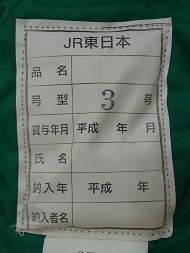 JR東日本
品名
号型 3 号
貸与年月 平成 年 月
氏名
納入年 平成 年
納入者名